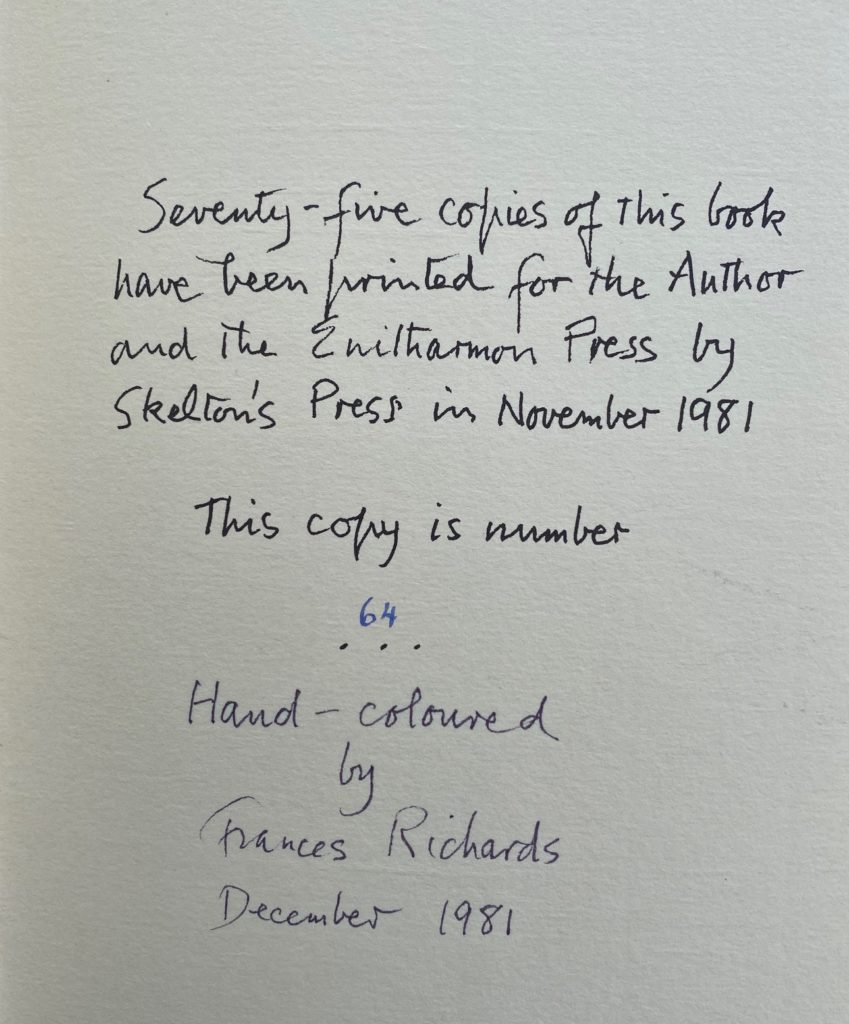 Seventy-five copies of this book
have been printed for the Author
and the Enitharmon Press by
Skelton's Press in November 1981
This copy is number
64
. . .
Hand-coloured
by
Frances Richards
December 1981